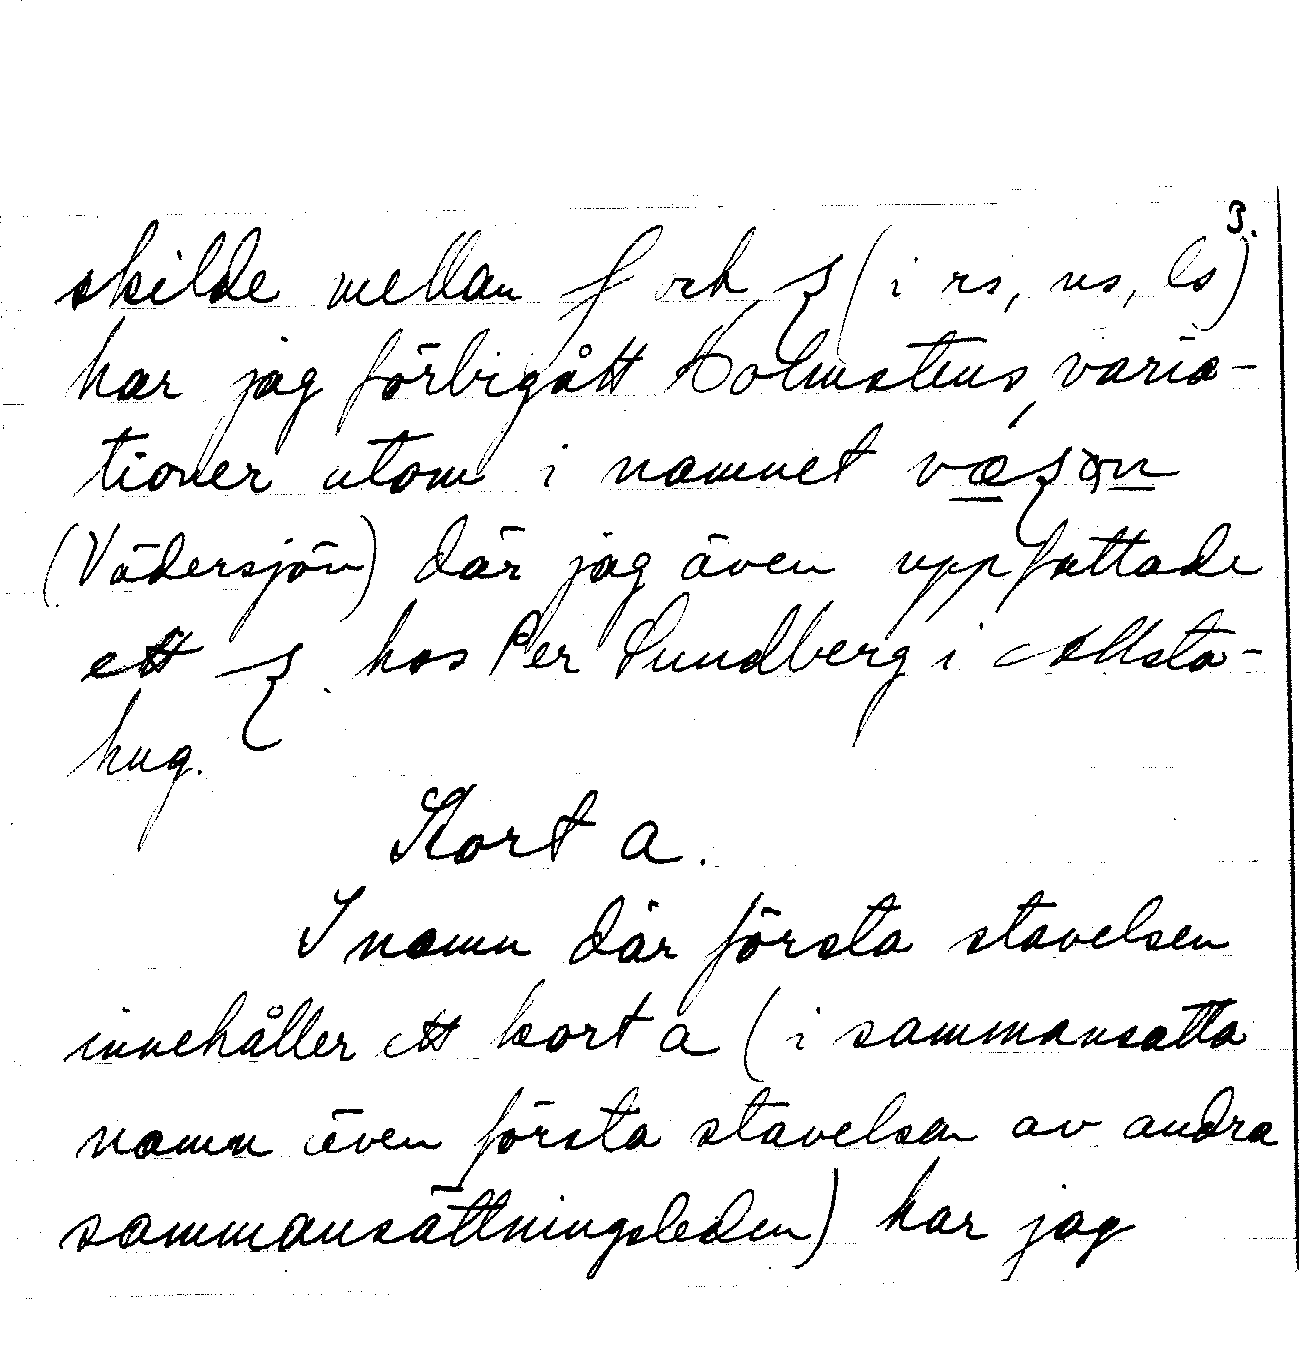 3.
skilde mellan ʃ och ʂ (i rs, ns, ls)
har jag förbigått Holmstens varia-
tioner utom i namnet
(Vädersjön) där jag även uppfattade
ett ʂ hos Per Lundberg i Allsta-
hug.
Kort a.
I namn där första stavelsen
innehåller ett kort a (i sammansatta
namn även första stavelsen av andra
sammansättningsleden) har jag